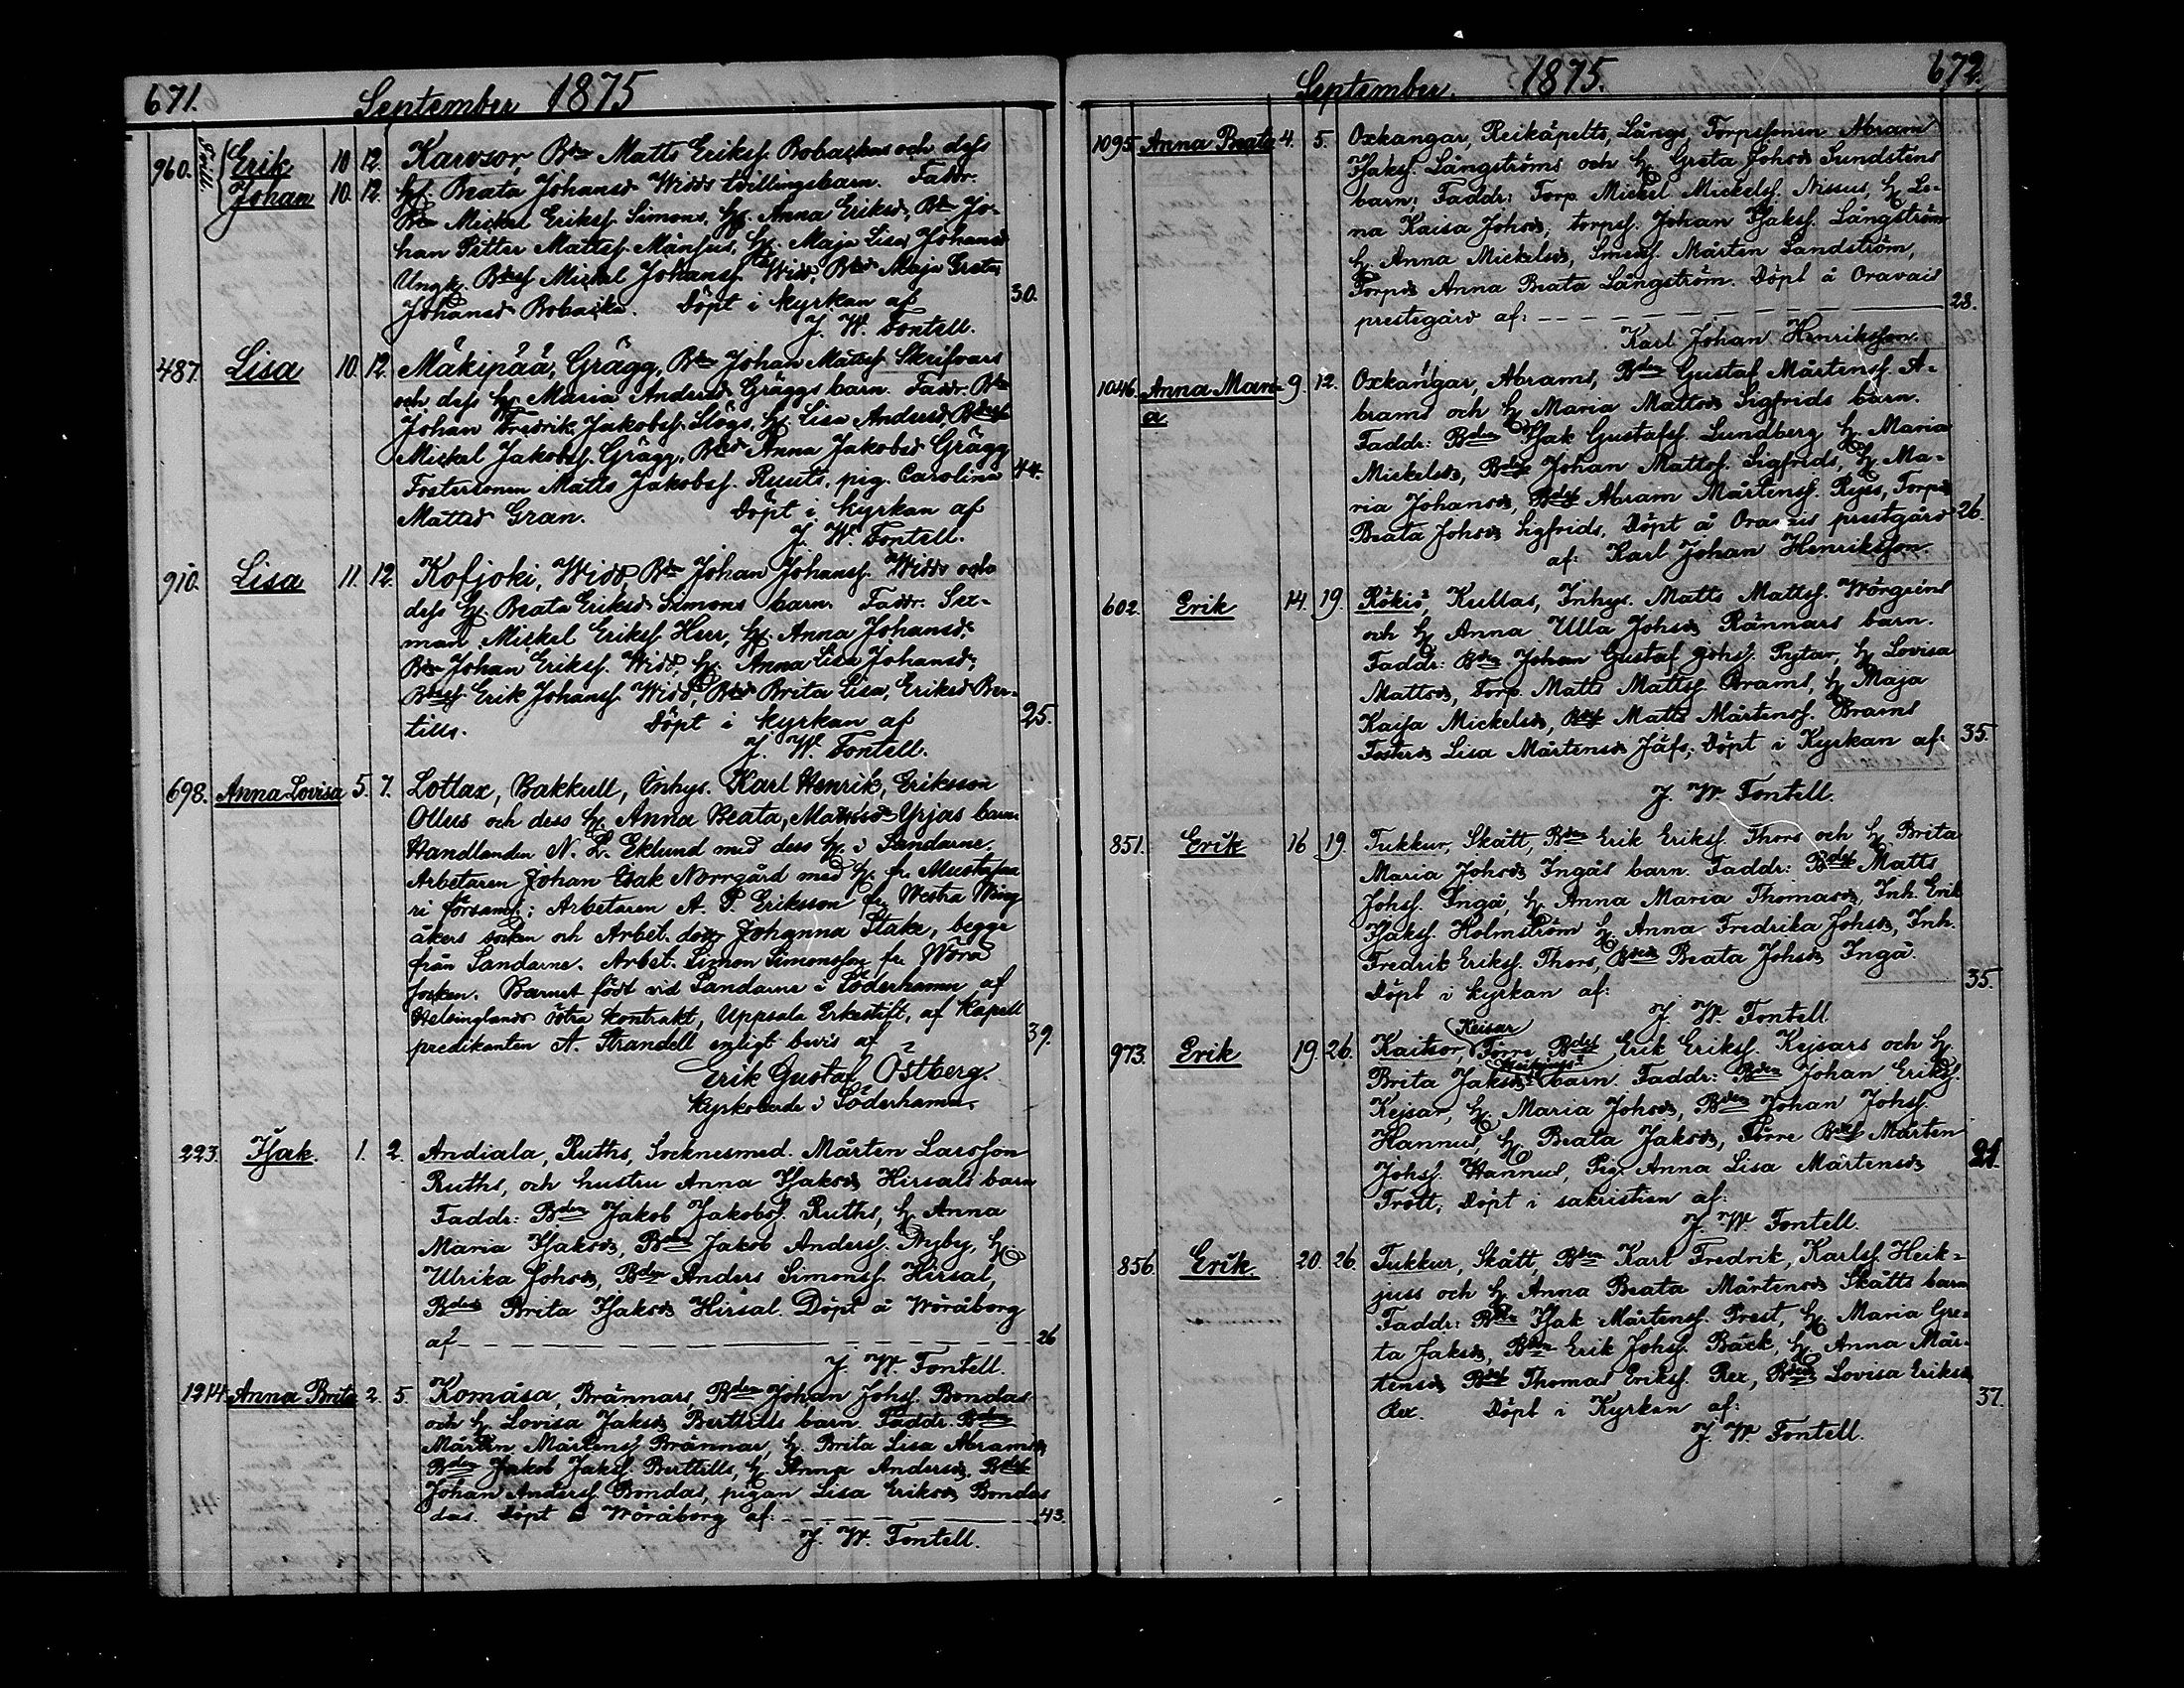 671. September 1875
960. Tvill. Erik 10 12. Karvsor, Bdn Matts Erikss. Bobackas och dess
Johan 10. 12. H. Beata Johansd. Widds tvillingsbarn. Faddr.
Bdn Mickel Erikss. Simons, H. Anna Eriksd, Bdn Jo-
han Petter Mattss. Månsus, H. Maja Lisa Johansd
Ungk. Bdess Mickel Johanss. Widd, Bded Maja Greta
Johansd. Bobacka. Döpt i kyrkan af 30.
J. W. Fontell.
487. Lisa 10. 12. Mäkipää, Grägg, Bdn Johan Mattss. Skrifvars
och dess H. Maria Andersd. Gräggs barn. Faddr. Bdn
Johan Fredrik Jakobss. Slögs, H. Lisa Andersd, Bdess
Mickel Jakobss. Grägg, Bded Anna Jakobsd. Grägg
Fostersonen Matts Jakobss. Ruuts, pig. Carolina 44.
Mattsd Gran. Döpt i kyrkan af
J. W. Fontell.
910. Lisa 11. 12. Kofjoki, Widd, Bdn Johan Johanss. Widds och
dess H. Beata Eriksd. Simons barn. Faddr. Sex-
man Mickel Erikss. Herr, H. Anna Johansd;
Bdn Johan Erikss. Widd, H. Anna Lisa Johansd;
Bdess Erik Johanss Widd, Bded Brita Lisa, Eriksd Ber-
tills. Döpt i kyrkan af 25.
J. W. Fontell.
698. Anna Lovisa 5. 7. Lotlax, Bakkull, Inhys. Karl Henrik, Eriksson
Ollus och dess H. Anna Beata, Mattsd Yrjas barn.
Handlanden N. L. Eklund med dess H. i Sandarne.
Arbetaren Johan Isak Norrgård med H. fr. Mustasaa
ri församl; Arbetaren A. P. Eriksson fr. Westra Wing
åkers socken och Arbet. dotr Johanna Stake, begge
från Sandarne. Arbet. Simon Simonsson fr. Wörå
socken. Barnet född vid Sandarne i Söderhamn af
Helsinglands östra kontrakt, Uppsala Erkestift, af Kapell
predikanten A. Strandell enligt bevis af 39.
Erik Gustaf Östberg.
Kyrkoherde i Söderhamn.
223. Isak. 1. 2. Andiala, Ruths, Socknesmed. Mårten Larsson
Ruths, och hustru Anna Isaksdr Hirsals barn
Faddr: Bden Jakob Jakobss. Ruths, H. Anna
Maria Isaksdr, Bden Jakob Anderss. Nyby, H.
Ulrika Johsdr, Bden Anders Simonss. Hirsal,
Bdedr Brita Isaksdr Hirsal. Döpt å Wöråborg
af 26
J. W. Fontell.
1214. Anna Brita 2. 5. Komåsa, Brännars, Bden Johan Johss. Bondas
och H. Lovisa Jaksdr Berttills barn. Faddr. Bden
Mårten Mårtenss Brännar, H. Brita Lisa Abramsdr,
Bden Jakob Jakss. Berttills, H. Anna Andersdr. Bdes
Johan Anderss Bondas, pigan Lisa Eriksdr Bondas
das. Döpt å Wöråborg af: 43.
J. W. Fontell.
September. 1875. 672.
1095 Anna Beata 4. 5. Oxkangar, Reikäpelts, Långs Torpssonen Abram
Isakss. Långströms och H. Greta Johsdr Sundstens
barn; Faddr: Torp. Mickel Mickelss. Nissus, H. Le-
na Kaisa Johsdr, torpss. Johan Isakss. Långström
H. Anna Mickelsdr, Smeds. Mårten Sandström,
Torpdr Anna Beata Långström. Döpt å Oravais
prestegård af: 28.
Karl Johan Henriksson.
1046. Anna Mari- 9. 12. Oxkangar, Abrams, Bden Gustaf Mårtenss. A-
a brams och H. Maria Mattsdr Sigfrids barn.
Faddr: Bden Isak Gustafss. Lundberg H. Maria
Mickelsdr, Bdes Johan Mattss. Sigfrids, H. Ma-
ria Johansdr, Bdes Abram Mårtenss. Rejss, Torpdr
Beata Johsdr Sigfrids, Döpt å Oravais prestgård 26.
af: Karl Johan Henriksson.
602. Erik 14. 19. Rökiö, Kullas, Inhys. Matts Mattss. Wörgrens
och H. Anna Ulla Johsdr Rännars barn.
Faddr: Bden Johan Gustaf Johss. Pytar, H. Lovisa
Mattsdr, Torp. Matts Mattss. Brams, H. Maja
Kaisa Mickelsdr, Bdes Matts Mårtenss. Brams
Fosterdr Lisa Mårtensdr Jäfs; Döpt i Kyrkan af: 35.
J. W. Fontell.
851. Erik 16 19. Tukkur, Skått, Bden Erik Erikss. Thors och H. Brita
Maria Johsdr Ingås barn. Faddr: Bdes Matts
Johss. Ingå, H. Anna Maria Thomasdr, Inh. Erik
Isakss. Holmström H. Anna Fredrika Johsdr, Inh.
Fredrik Erikss. Thors, Bdedr Beata Johsdr Ingå.
Döpt i kyrkan af: 35.
J. W. Fontell
973. Erik 19 26. Kaitsor, Keisar Torre Bdes Erik Erikss. Kejsars och H.
Brita Jaksdr barn. Faddr: Bden Johan Erikss.
Kejsar, H. Maria Johsdr, Bden Johan Johss.
Hannus, H. Beata Jaksdr, Torre Bdes Mårten
Johss. Hannus, Pig. Anna Lisa Mårtensdr 21.
Trött, Döpt i sakristian af:
J. W. Fontell.
856. Erik. 20. 26. Tukkur, Skått, Bden Karl Fredrik, Karlss. Heik-
juss och H. Anna Beata Mårtensdr Skåtts barn
Faddr: Bdn Isak Mårtenss. Prest, H. Maria Gre-
ta Jaksdr, Bdn Erik Johss. Bäck, H. Anna Mår-
tensdr Bdes Thomas Erikss. Rex, Bdedr Lovisa Eriksdr
Rex. Döpt i Kyrkan af: 37.
J. W. Fontell.